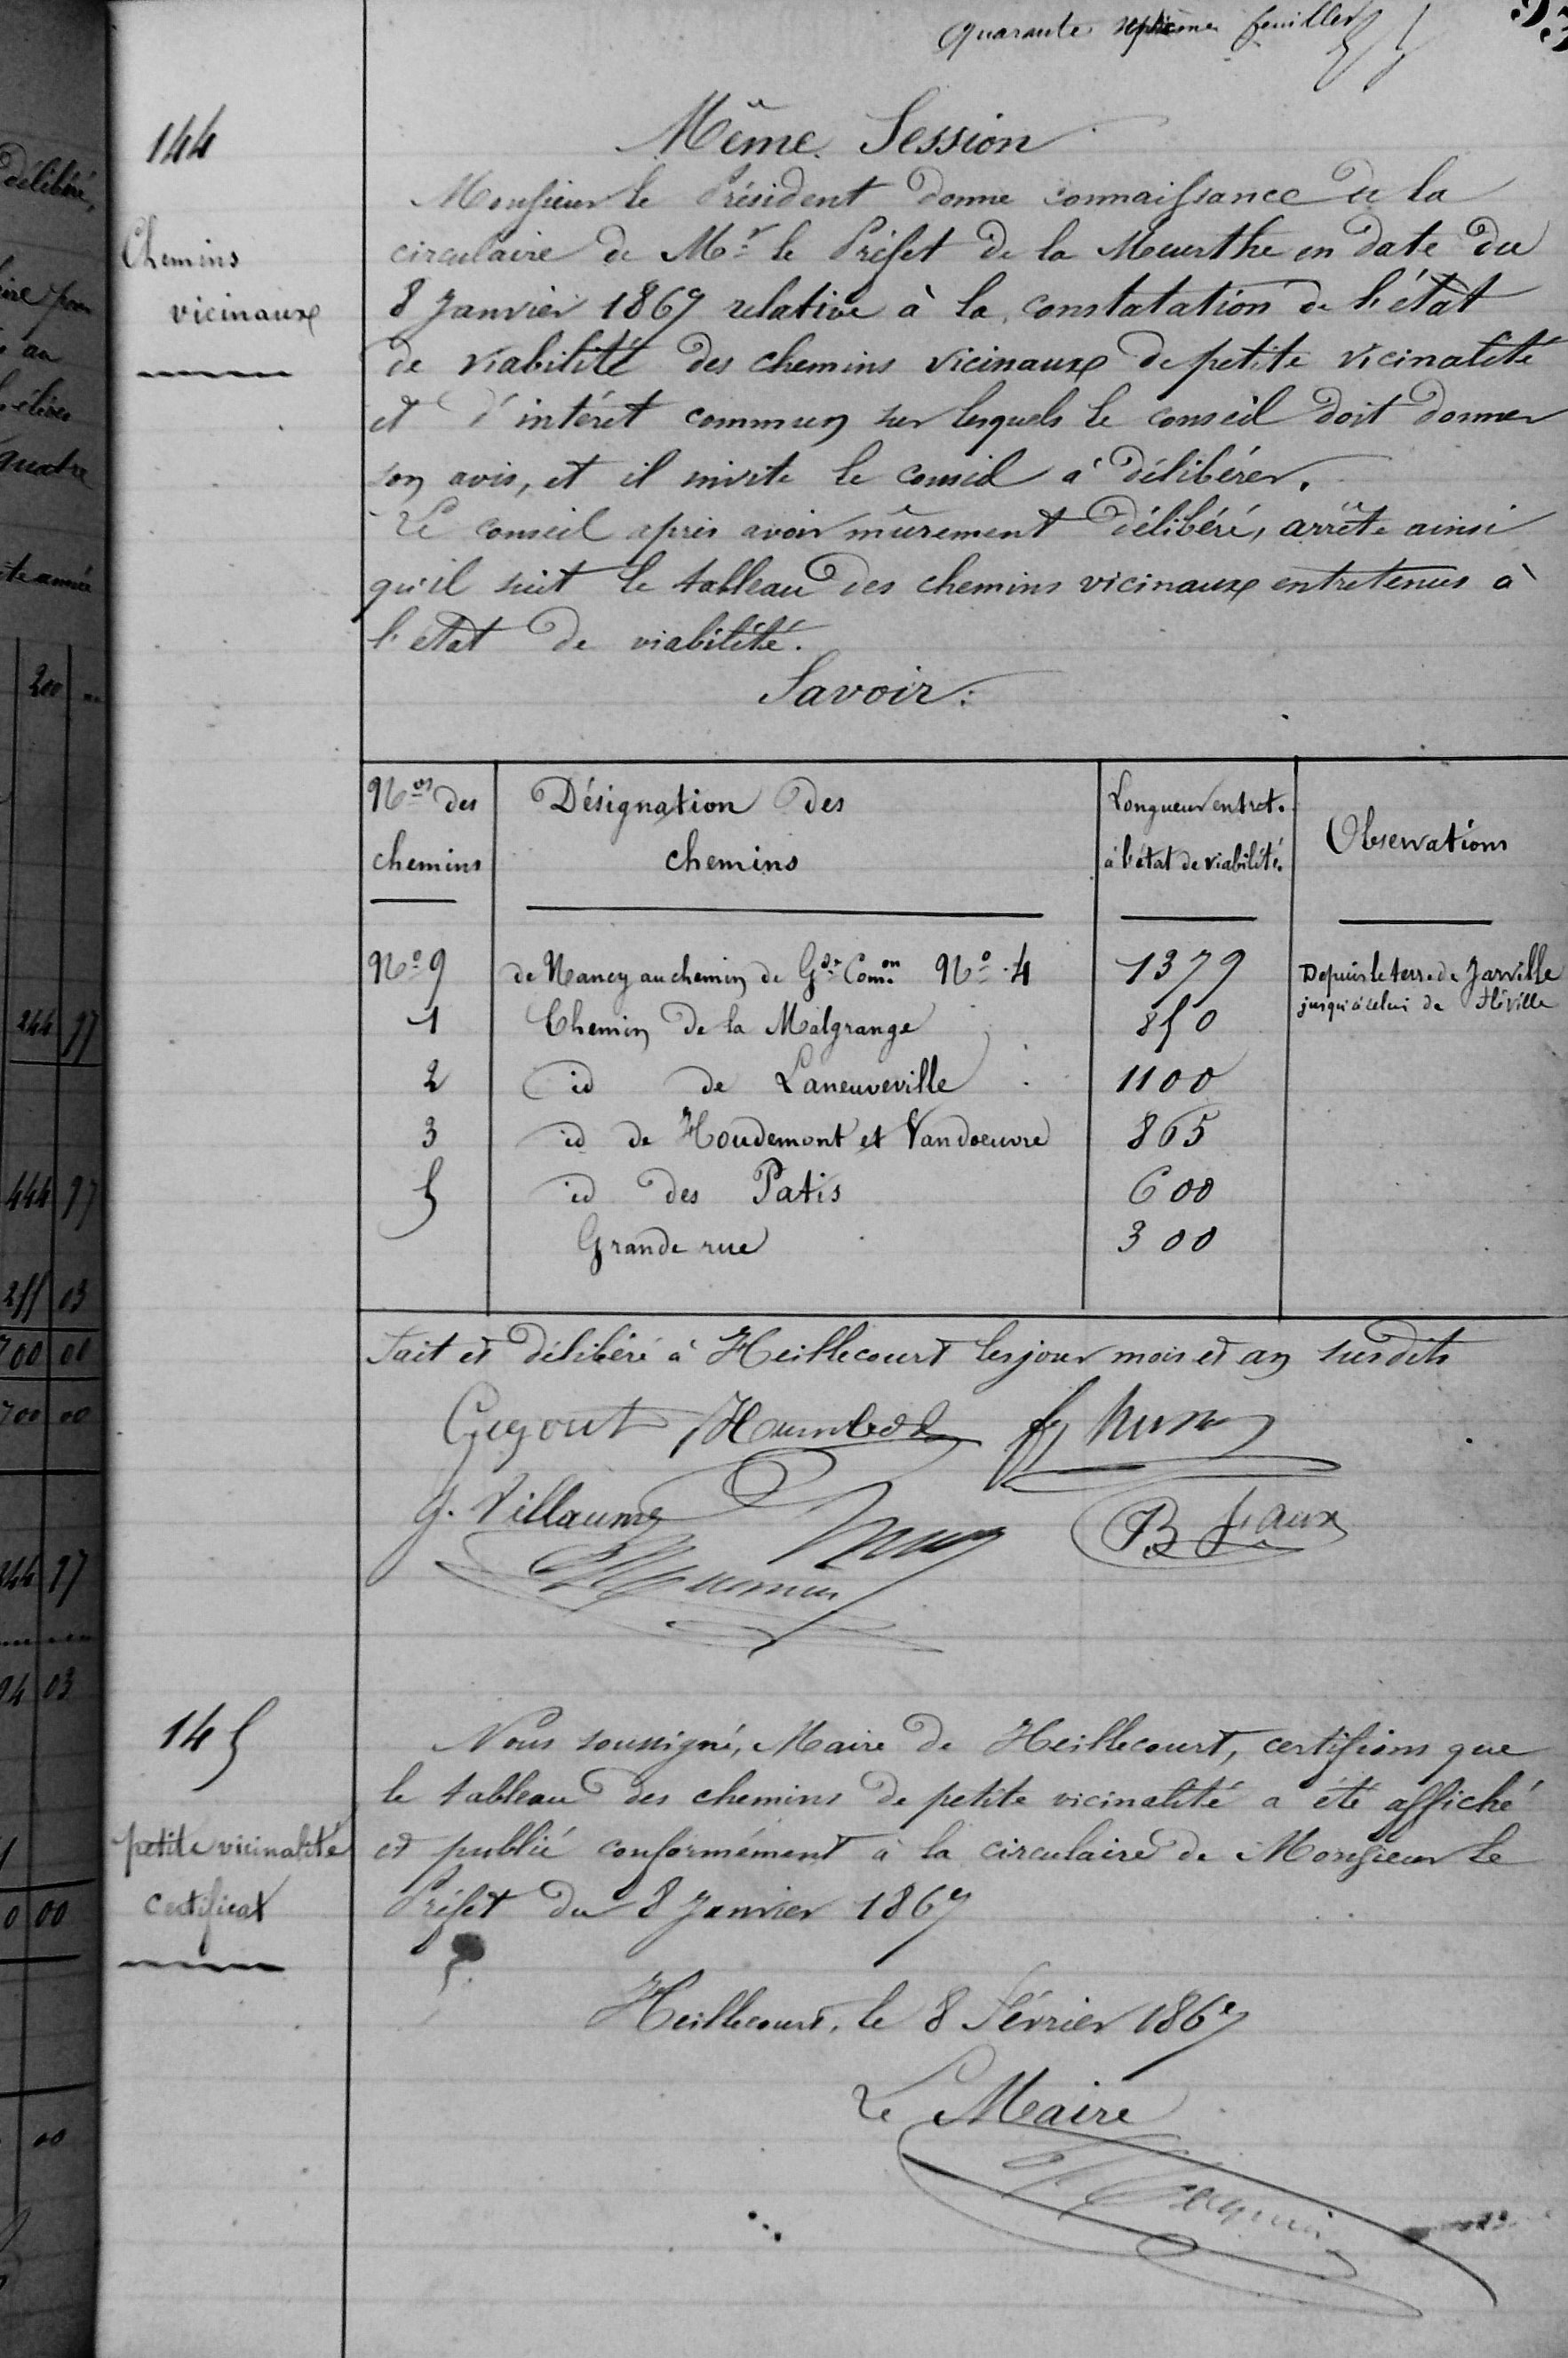 Quarante septième feuillet
144
Chemins
vicinaux
Même Session
Monsieur le Président donne connaissance de la
circulaire de Mr le Préfet de la Meurthe en date du
8 Janvier 1867 relative à la constatation de l'état
de viabilité des chemins vicinaux de petite vicinalité
et d'intérêt commun sur lesquels le conseil doit donner
son avis, et il invite le conseil à délibérer.
Le conseil après avoir mûrement délibéré, arrête ainsi
qu'il suit le tableau des chemins vicinaux entretenus à
l'etat de viabilité.
Savoir:
Nos des chemins | Désignation des chemins | Longueur entret. à l'état de viabilité. | Observations
No 9 | de Nancy au chemin de Gde Comon No 4 | 1379 | Depuis le terre de Jarville
jusqu'à celui de Fléville
1 | Chemin de la Malgrange | 850
2 | id de Laneuveville | 1100
3 | id de Houdemont et Vandoeuvre | 865
5 | id des Patis | 600
Grande rue | 300
Fait et délibéré à Heillecourt les jour mois et an susdits
Gegout Humbert
g. Villaume B Faux
145
petite vicinalité
certificat
Nous soussigné, Maire de Heillecourt, certifions que
le tableau des chemins de petite vicinalité a été affiché
et publié conformément à la circulaire de Monsieur le
Préfet du 8 Janvier 1867
Heillecourt, le 8 Février 1867
Le Maire